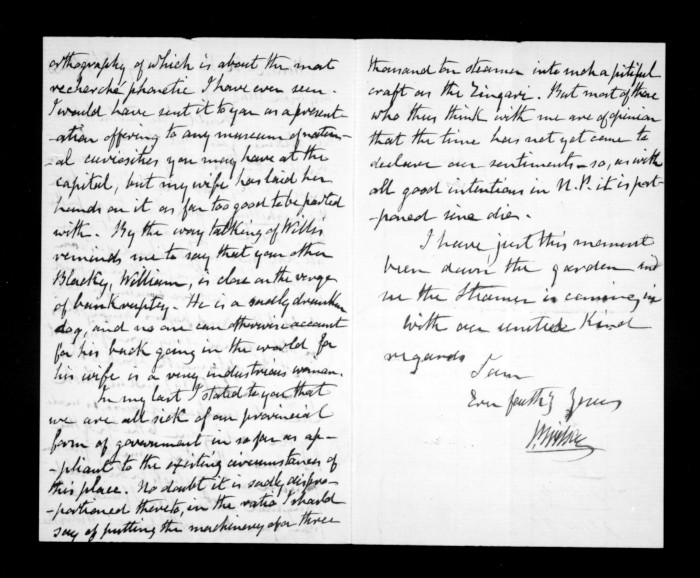 orthography of which is about the most
recherché phonetic I have ever seen.
I would have sent it to you as a present-
-ation offering to any museum of natur-
-al curiosities you may have at the
capital, but my wife has laid her
hands on it as far too good to be parted
with. By the way talking of Willis
reminds me to say that your other
Blacky, William, is close on the verge
of bankruptcy. He is a sadly drunken
dog, and no one can otherwise account
for his back going in the world for
his wife is a very industrious woman.
In my last I stated to you that
we are all sick of our provincial
form of government in so far as ap-
-pliant to the existing circumstances of
this place. No doubt it is sadly dispro-
-portioned thereto, in the ratio I should
say of putting the machinery of a three
thousand ton steamer into such a pitiful
craft as the Zingari. But most of those
who thus think with me are of opinion
that the time has not yet come to
declare our sentiments - so, as with
all good intentions in N.P. it is post-
-poned sine die.
I have just this moment
been down the garden and
see the Steamer is coming in
With our united Kind
regards
I am
Ever faithfy Yours